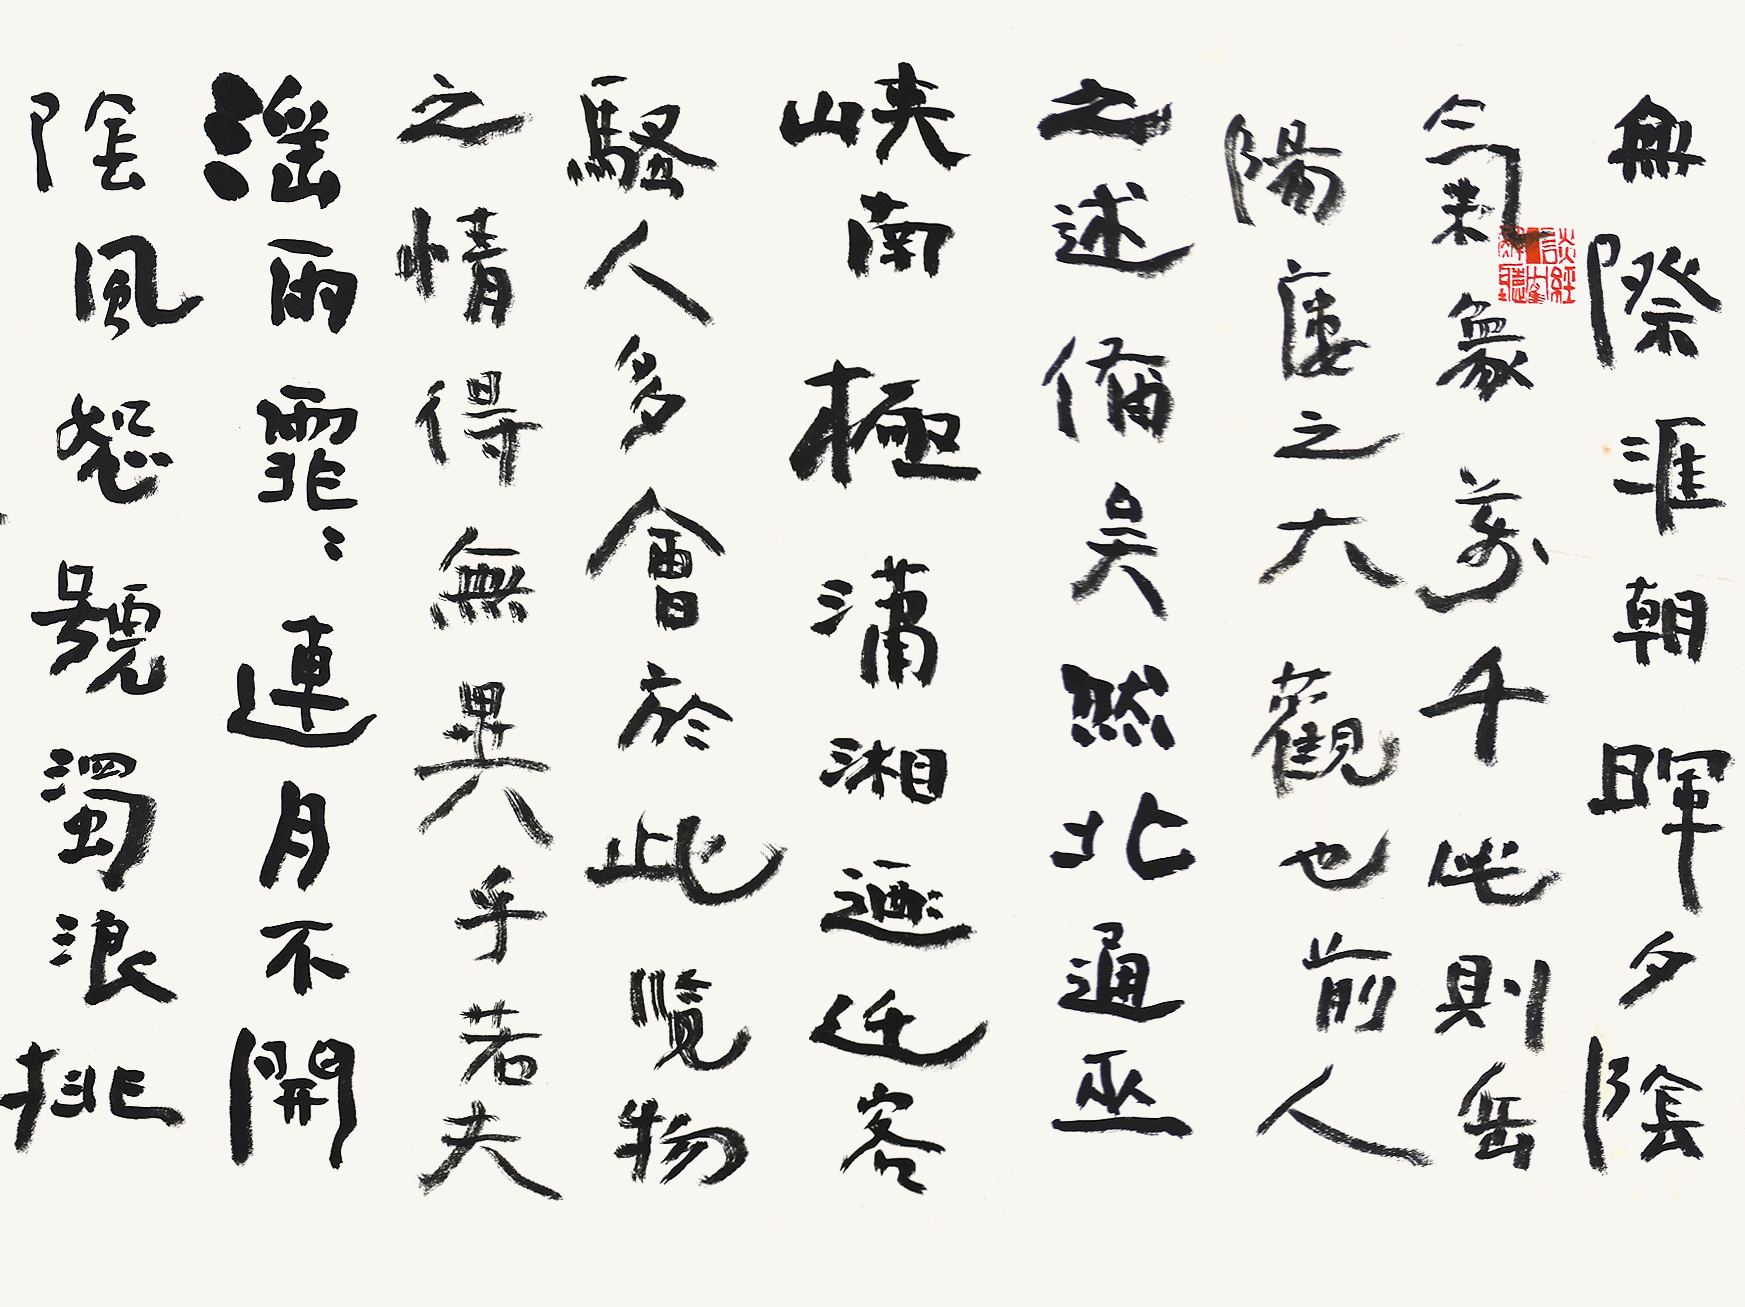 無際涯朝暉夕陰
氣象萬千此則岳
陽廔之大觀也前人
之述備矣然北通巫
峽南極瀟湘迁客
騷人多會於此覽物
之情得無異乎若夫
滛雨霏〻連月不開
陰風怒號濁浪排